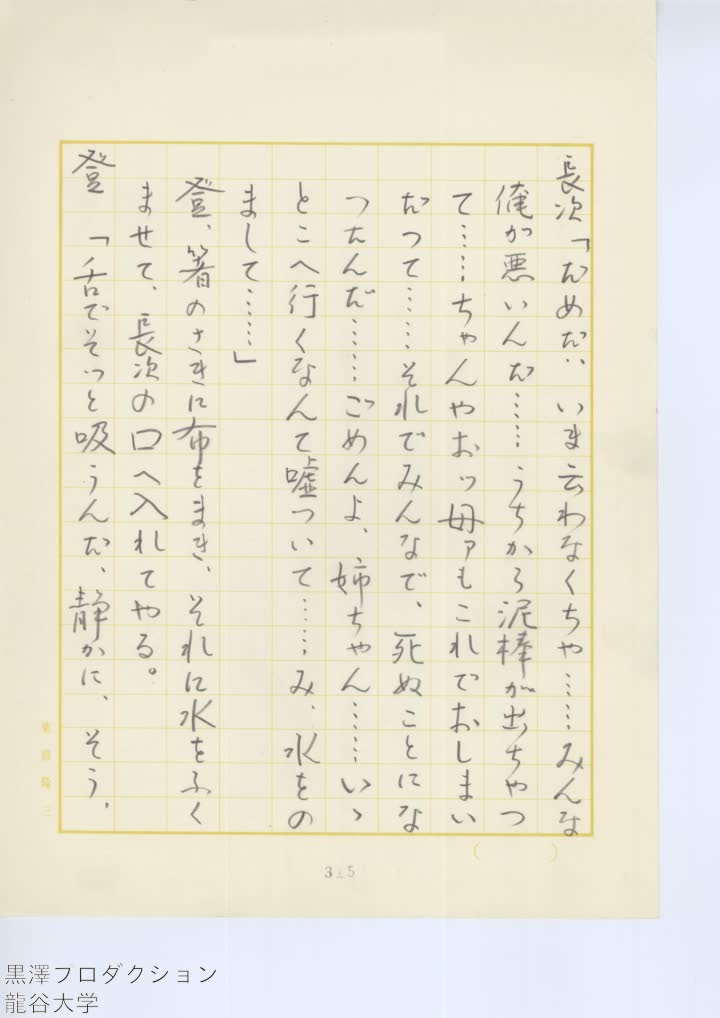 長次「だめだ、いま云わなくちや……みんな
俺が悪いんだ……うちから泥棒が出ちやつ
て……ちゃんやおッ母ァもこれでおしまい
だつて……それでみんなで、死ぬことにな
つたんだ……ごめんよ、姉ちゃん……いゝ
とこへ行くなんて嘘ついて……み、水をの
まして……」
登、箸のさきに布をまき、それに水をふく
ませて、長次の口へ入れてやる。
登「舌でそっと吸うんだ、静かに、そう、
3 5
黒澤プロダクション
龍谷大学